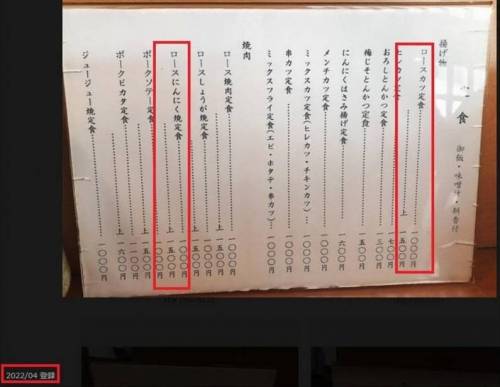 定食 御飯・味噌汁・
揚げ物
ロースカツ定食 一〇〇〇円
上 一五〇〇円
ヒレカツ定食 一七〇〇円
おろしとんかつ定食 一三〇〇円
梅じそとんかつ定食 一五〇〇円
にんにくはさみ揚げ定食 一六〇〇円
メンチカツ定食 一〇〇〇円
ミックスカツ定食(ヒレカツ・チキンカツ) 一〇〇〇円
串カツ定食 一〇〇〇円
ミックスフライ定食(エビ・ホタテ・串カツ) 一〇〇〇円
焼肉
ロース焼肉定食 一〇〇〇円
上 一五〇〇円
ロースしょうが焼定食 一〇〇〇円
上 一五〇〇円
ロースにんにく焼定食 一〇〇〇円
上 一五〇〇円
ポークソテー定食 一〇〇〇円
上 一五〇〇円
ポークピカタ定食 上 一六〇〇円
ジュージュー焼定食 一〇〇〇円
2022/04 登録